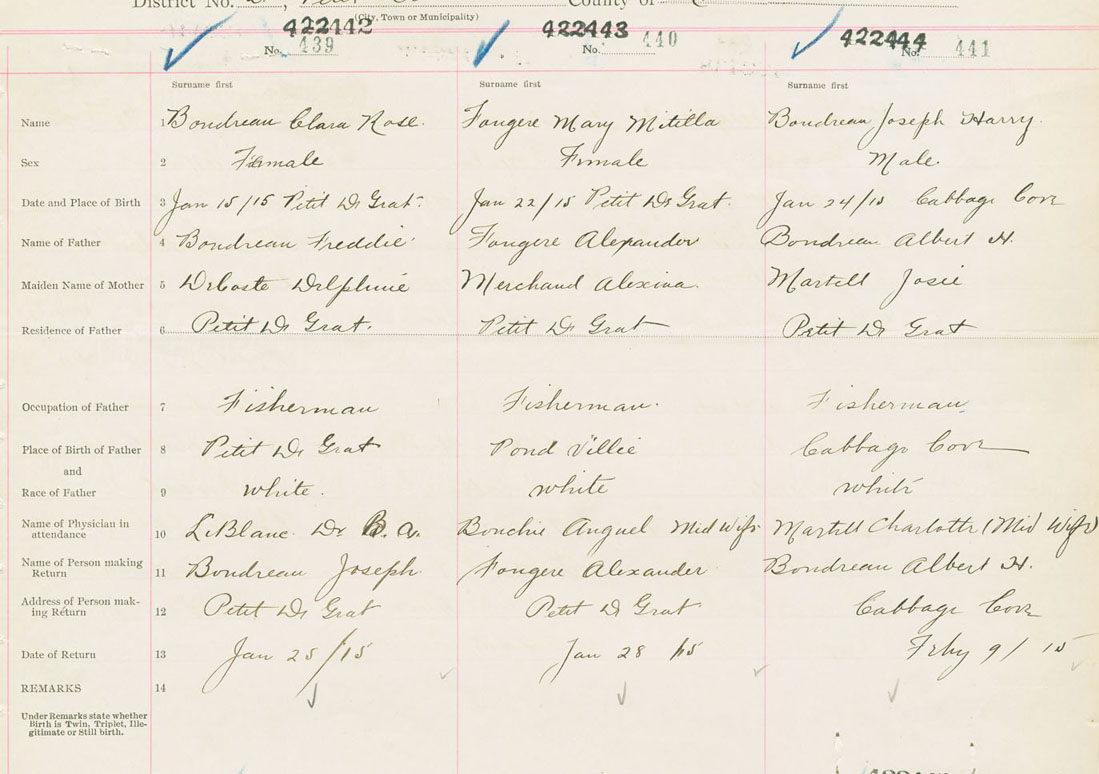 District No.
County of
(City, Town or Municipality)
422442 422443 422444
No. 439 No. 440 No. 441
Surname first Surname first Surname first
Name 1 Boudreau Clara Rose. Fougere Mary Mitilla Boudreau Joseph Harry.
Sex 2 Female Female Male.
Date and Place of Birth 3 Jan 15/15 Petit De Grat. Jan 22/15 Petit De Grat. Jan 24/15 Cabbage Cove
Name of Father 4 Boudreau Freddie Fougere Alexander Boudreau Albert H.
Maiden Name of Mother 5 DeCoste Delphine Merchand Alexina. Martell Josie
Residence of Father 6 Petit De Grat. Petit De Grat Petit De Grat
Occupation of Father 7 Fisherman Fisherman. Fisherman
Place of Birth of Father 8 Petit De Grat Pond Villie Cabbage Cove
and
Race of Father 9 white. white white
Name of Physician in
attendance 10 LeBlanc Dr B. A. Bonchie Anguel Midwife Martell Charlotte (Mid Wife)
Name of Person making
Return 11 Boudreau Joseph Fougere Alexander Boudreau Albert H.
Address of Person mak-
ing Return 12 Petit De Grat Petit De Grat Cabbage Cove
Date of Return 13 Jan 25/15 Jan 28 /15 Feby 9/15
REMARKS 14
Under Remarks state whether
Birth is Twin, Triplet, Ille-
gitimate or Still birth.